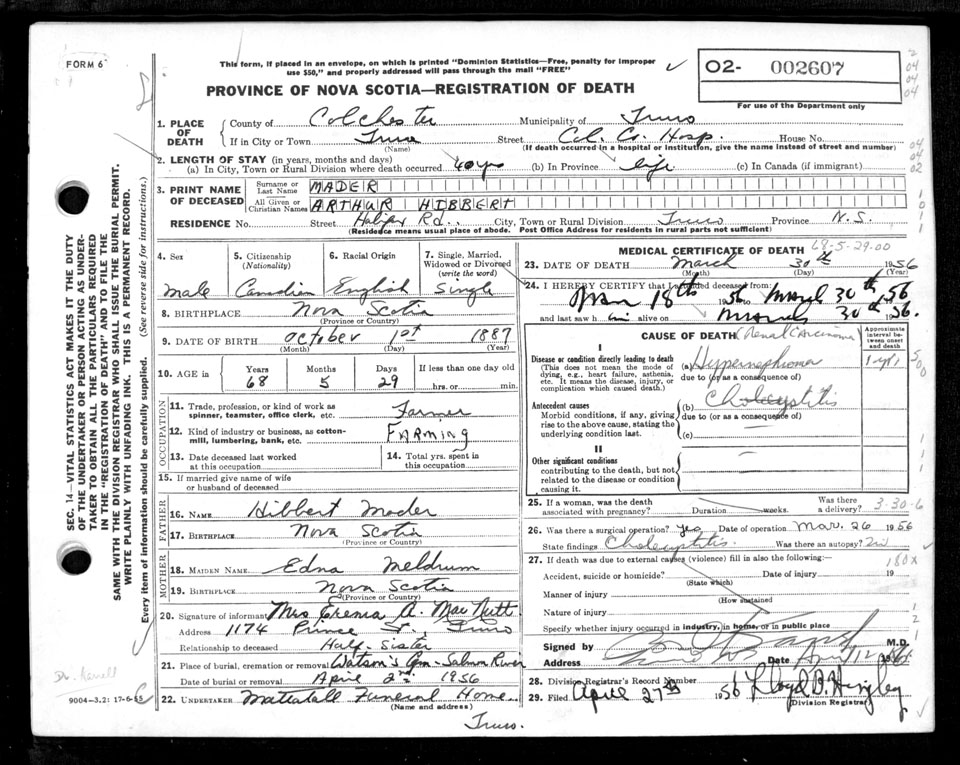 FORM 6
This form, if placed in an envelope, on which is printed "Dominion Statistics—Free, penalty for improper
use $50," and properly addressed will pass through the mail "FREE"
O2- 002607
For use of the Department only
PROVINCE OF NOVA SCOTIA—REGISTRATION OF DEATH
1. PLACE OF DEATH
County of Colchester Municipality of Truro
If in City or Town Truro Street Col. Co. Hosp. House No.
(Name) (If death occurred in a hospital or institution, give the name instead of street and number)
2. LENGTH OF STAY (in years, months and days)
(a) In City, Town or Rural Division where death occurred 40 yrs (b) In Province life (c) In Canada (if immigrant)
3. PRINT NAME OF DECEASED
Surname or Last Name MADER
All Given or Christian Names ARTHUR HIBBERT
RESIDENCE No. Street Halifax Rd.. City, Town or Rural Division Truro Province N.S.
(Residence means usual place of abode. Post Office Address for residents in rural parts not sufficient)
4. Sex
male
5. Citizenship
(Nationality)
Canadian
6. Racial Origin
English
7. Single, Married,
Widowed or Divorced
(write the word)
Single
8. BIRTHPLACE Nova Scotia
(Province or Country)
9. DATE OF BIRTH October 1st 1887
(Month) (Day) (Year)
10. AGE in Years Months Days If less than one day
68 5 29 hrs. or min.
OCCUPATION
11. Trade, profession, or kind of work as
spinner, teamster, office clerk, etc. Farmer
12. Kind of industry or business, as cotton-
mill, lumbering, bank, etc. FARMING
13. Date deceased last worked
at this occupation
14. Total yrs. spent in
this occupation
15. If married give name of wife
or husband of deceased
FATHER
16. NAME Hibbert Mader
17. BIRTHPLACE Nova Scotia
(Province or Country)
MOTHER
18. MAIDEN NAME Edna Meldrum
19. BIRTHPLACE Nova Scotia
(Province or Country)
20. Signature of informant Mrs A. MacNutt
Address 1174 Prince St. Truro
Relationship to deceased Half-Sister
21. Place of burial, cremation or removal Watson's Cem-Salmon River
Date of burial or removal April 2nd 1956
22. UNDERTAKER Mattatall Funeral Home
(Name and address)
Truro.
MEDICAL CERTIFICATE OF DEATH 68-5-29-00
23. DATE OF DEATH March 30th 1956
(Month) (Day) (Year)
24. I HEREBY CERTIFY that I attended deceased from:
18th 1956 to March 30th 1956
and last saw him alive on March 30th 1956.
CAUSE OF DEATH (Renal Carcinoma)
Approximate
interval be-
tween onset
and death
I
Disease or condition directly leading to death
(This does not mean the mode of
dying, e.g., heart failure, asthenia,
etc. It means the disease, injury, or
complication which caused death.)
(a) Hypernephroma 1 yr
due to (or as a consequence of)
Antecedent causes
Morbid conditions, if any, giving
rise to the above cause, stating the
underlying condition last.
(b) Cholecystitis
due to (or as a consequence of)
(c)
II
Other significant conditions
contributing to the death, but not
related to the disease or condition
causing it.
25. If a woman, was the death
associated with pregnancy? Duration weeks. Was there
a delivery? 3-30-6
26. Was there a surgical operation? yes Date of operation Mar. 26 1956
State findings Cholecystitis. Was there an autopsy?
27. If death was due to external causes (violence) fill in also the following:— 180x
Accident, suicide or homicide? Date of injury 19
(State which)
Manner of injury
(How sustained
Nature of injury
Specify whether injury occurred in industry, in home, or in public place
Signed by M.D.
Address Date
28. Division Registrar's Record Number
29. Filed April 27th 1956 Lloyd B. Hingley
(Division Registrar)
SEC. 14—VITAL STATISTICS ACT MAKES IT THE DUTY
OF THE UNDERTAKER OR PERSON ACTING AS UNDER-
TAKER TO OBTAIN ALL THE PARTICULARS REQUIRED
IN THE "REGISTRATION OF DEATH" AND TO FILE THE
SAME WITH THE DIVISION REGISTRAR WHO SHALL ISSUE THE BURIAL PERMIT.
WRITE PLAINLY WITH UNFADING INK. THIS IS A PERMANENT RECORD.
Every item of information should be carefully supplied. (See reverse side for instructions.)
9004—3.2: 17-6-55